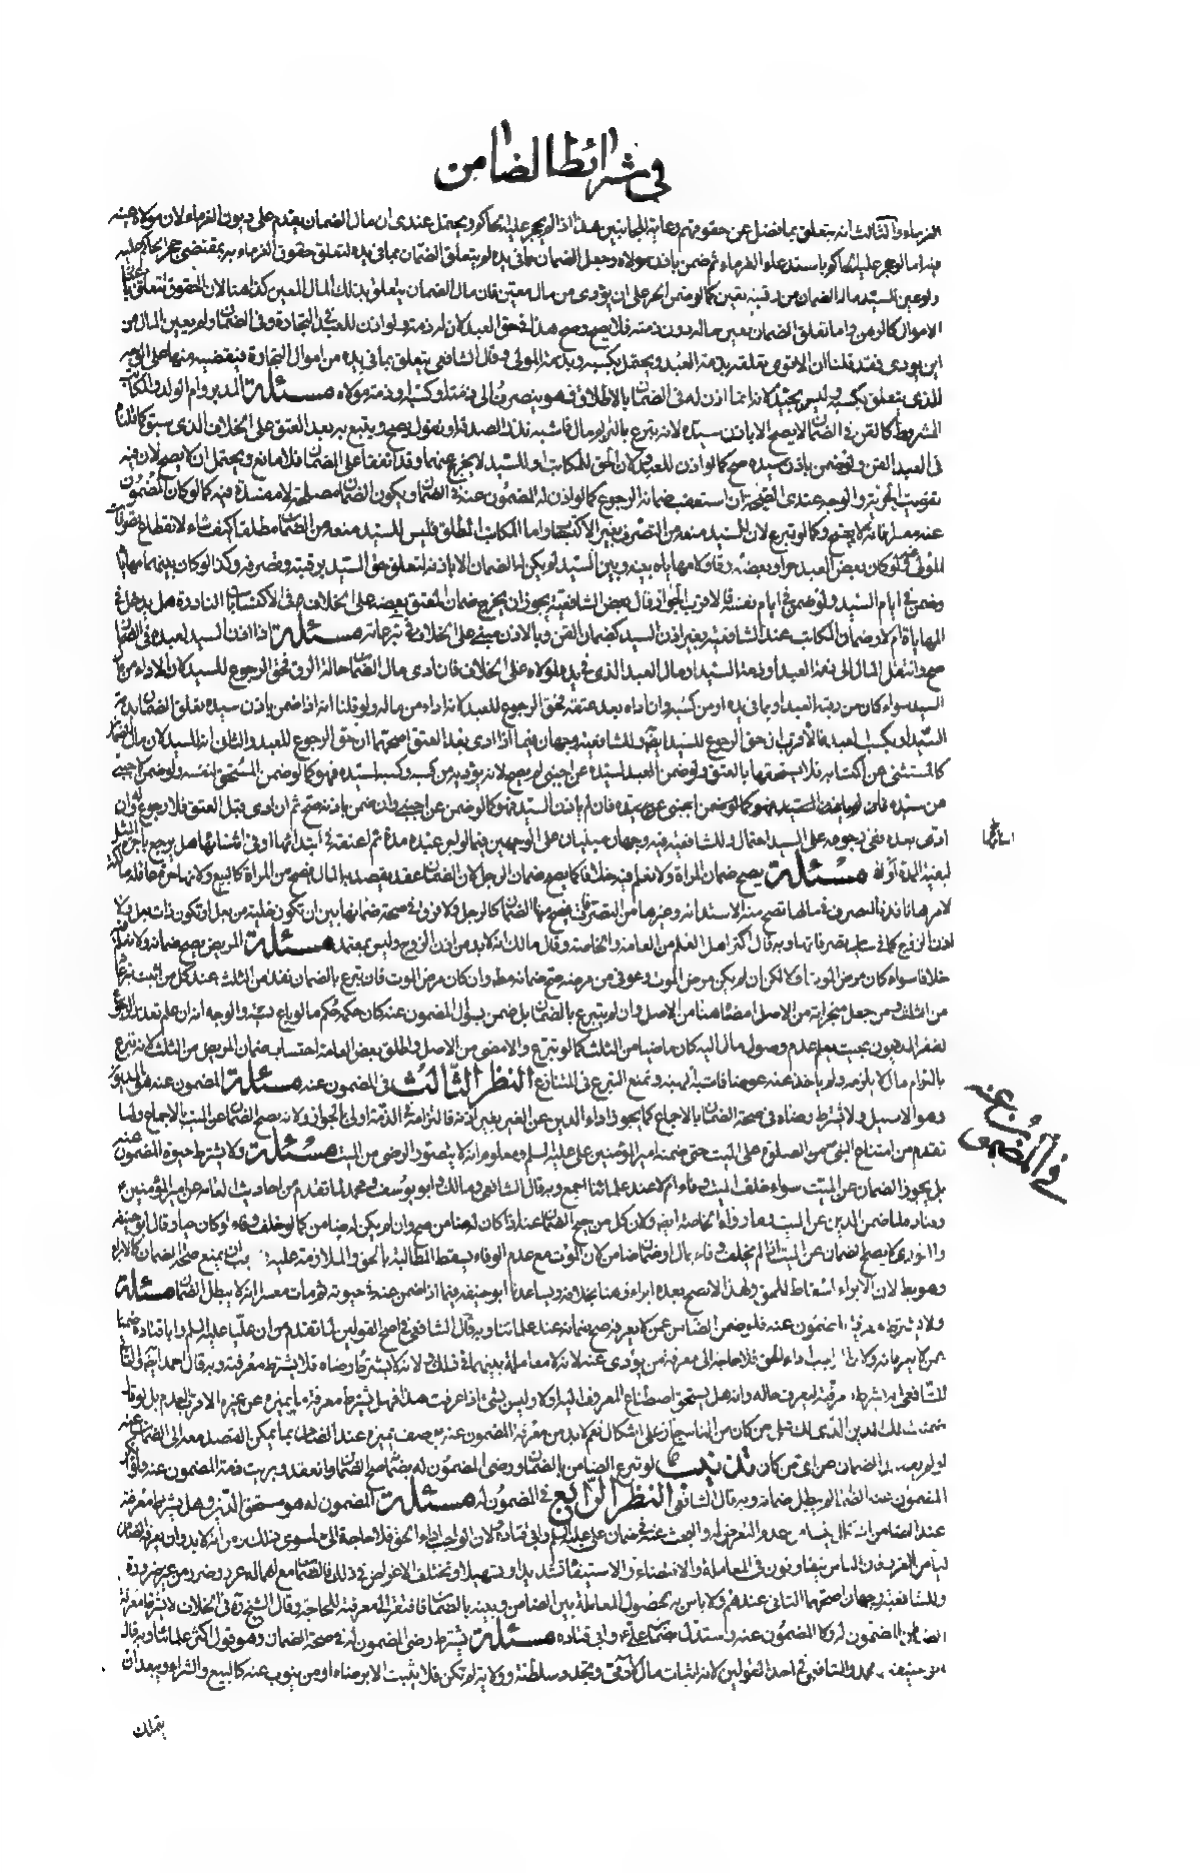 في شرائط الضامن
الغرماء والثالث انه يتعلق بما فضل عن حقوقهم رعاية للجانبين هذا اذا لم يحجر عليه الحاكم ويحتمل عندى ان مال الضمان يقدم على ديون الغرماء لان مولاه عينه
فيه اما لو حجر عليه الحاكم باستدعاء الغرماء ثم ضمن باذن مولاه وجعل الضمان مما فى يده لم يتعلق الضمان بما فى يده لتعلق حقوق الغرماء به بمقتضى حجر الحاكم عليه
ولو عين السيد مال الضمان من رقبته تعين كما لو ضمن الحر على ان يؤدى من مال معين فان مال الضمان يتعلق بذلك المال المعين كذا هنا لان الحقوق تتعلق باعيان
الاموال كالرهن واما تعلق الضمان بعين ماله دون ذمته فلا يصح وصح هذا فى حق العبد لان له ذمة ولو اذن للعبد فى التجارة وفى الضمان ولم يعين المال من
اين يؤدى فقد قلنا ان الاقوى تعلقه بذمة العبد ويحتمل بكسبه وبذمة المولى وقال الشافعى يتعلق بما فى يده من اموال التجارة فيقضيه منها
الذى يتعلق بكسبه وليس بجيد لانه انما اذن له فى الضمان بالاطلاق فهو ينصرف الى ذمته او كسبه او ذمة مولاه مسئلة المدبر وام الولد والمكاتب
المشروط كالقن فى الضمان لا يصح الا باذن سيده لانه تبرع بالتزام مال فاشبه نذر الصدقة او نقول يصح ويتبع به بعد العتق على الخلاف الذى سبق كما قلناه
فى العبد القن ولو ضمن باذن سيده صح كما لو اذن للعبد ولان الحق للمكاتب او للسيد لا يخرج عنهما وقد اتفقا على الضمان فلا مانع ويحتمل ان لا يصح لان فيه
تفويت الحرية والوجه عندى الصحة ان استعقب ضمانه الرجوع كما لو اذن له المضمون عنه فى الضمان ويكون الضمان مصلحة لا مفسدة فيه كما لو كان المضمون
عنه معسرا فانه لا يصح وكما لو تبرع لان للسيد منعه من التصرف بغير الاكتساب اما المكاتب المطلق فليس للسيد منعه من الضمان مطلقا كيف شاء لانقطاع تصرفات
المولى عنه ولو كان بعض العبد حرا وبعضه رقا ولا مهاياه بينه وبين السيد لم يكن له الضمان الا باذنه لتعلق حق السيد برقبته وتصرفه وكذا لو كان بينهما مهاياة
وضمن فى ايام السيد ولو ضمن فى ايام نفسه فالاقرب الجواز وقال بعض الشافعية يجوز ان يخرج ضمان المعتق بعضه على الخلاف فى الاكتسابات النادرة هل يدخل فى
المهاياة ام لا وضمان المكاتب عند الشافعية بغير اذن السيد كضمان القن وبالاذن مبنى على الخلاف فى تبرعاته مسئلة اذا اذن السيد لعبده فى الضمان
صح وانتقل المال الى ذمة العبد او ذمة السيد او مال العبد الذى فى يده لمولاه على الخلاف فان ادى مال الضمان حالة الرق فحق الرجوع للسيد لان الاداء من مال
السيد سواء كان من رقبة العبد او مما فى يده او من كسبه وان اداه بعد عتقه فحق الرجوع للعبد لانه اداه من ماله ولو قلنا انه اذا ضمن باذن سيده تعلق الضمان بذمة
السيد او بكسب لعبد فالاقرب ان حق الرجوع للسيد ايضا وللشافعية وجهان فيما اذا ادى بعد العتق اصحهما ان حق الرجوع للعبد والثانى انه للسيد لان مال الضمان
كالمستثنى عن اكتسابه فلا يستحقها بالعتق ولو ضمن العبد لسيده عن اجنبى لم يصح لانه يؤديه من كسبه وكسبه لسيده فهو كما لو ضمن المستحق لنفسه ولو ضمن لاجنبى
عن سيده فان لم ياذن السيد فهو كما لو ضمن عن اجنبى وان ضمن باذنه صح ثم ان ادى قبل العتق فلا رجوع له وان
ادى بعده ففى رجوعه على السيد احتمال وللشافعية فيه وجهان مبنيان على الوجهين فيما لو اجر عبده مدة ثم اعتقه فى ابتدائها او فى اثنائها هل يرجع باجرة المثل
لبقية المدة او لا مسئلة يصح ضمان المراة ولا نعلم فيه خلافا كما يصح ضمان الرجل لان الضمان عقد يقصد به المال فيصح من المراة كالبيع ولانها حرة عاقلة مالكة
لامرها نافذة التصرف فى مالها تصح منه الاستدانة وغيرها من التصرفات فيصح منها الضمان كالرجل ولا فرق فى صحة ضمانها بين ان تكون خلية من بعل او تكون ذات بعل ولا
اذن الزوج كما فى سائر تصرفاتها وبه قال اكثر اهل العلم من العامة والخاصة وقال مالك انه لا بد من اذن الزوج وليس بمعتمد مسئلة المريض يصح ضمانه ولا نعلم فيه
خلافا سواء كان مرض الموت او لا لكن ان لم يكن مرض الموت وعوفى من مرضه صح ضمانه مطلقا وان كان مرض الموت فان تبرع بالضمان نفذ من الثلث عند كل من اثبت تبرعاته
من الثلث ومن جعل منجزاته من الاصل امضاه هنا من الاصل وان لم يتبرع بالضمان بل ضمن بسؤال المضمون عنه كان حكمه حكم ما لو باع نسيئة والوجه انه ان علم تعذر الرجوع
لفقر المديون بحيث يعلم عدم وصول مال اليه كان ماضيا من الثلث كما لو تبرع والا مضى من الاصل واطلق بعض العامة احتساب ضمان المريض من الثلث لانه تبرع
بالتزام مال لا يلزمه ولم ياخذ عنه عوضا فاشبه الهبة ونمنع التبرع فى المتنازع النظر الثالث فى المضمون عنه مسئلة المضمون عنه هو المديون
وهو الاصيل ولا يشترط رضاه فى صحة الضمان بالاجماع كما يجوز اداء الدين عن الغير بغير اذنه فالتزامه فى الذمة اولى بالجواز ولانه يصح الضمان عن الميت بالاجماع ولما
تقدم من امتناع النبى من الصلوة على الميت حتى ضمنه امير المؤمنين على عليه السلم ومعلوم انه لا يتصور الرضى من الميت مسئلة ولا يشترط حيوة المضمون عنه
بل يجوز الضمان عن الميت سواء خلف الميت وفاء ام لا عند علمائنا اجمع وبه قال الشافعى ومالك وابو يوسف ومحمد لما تقدم من احاديث العامة عن امير المؤمنين ع
وقتادة لما ضمنا الدين عن الميت وما رواه الخاصة ايضا ولان كل من صح الضمان عنه اذا كان له ضامن صح وان لم يكن له ضامن كما لو خلف وفاء او كان حيا وقال ابو حنيفة
والثورى لا يصح الضمان عن الميت اذا لم يخلف وفاء بمال او ضمان ضامن لان الموت مع عدم الوفاء يسقط المطالبة بالحق والملازمة عليه فوجب ان يمنع صحة الضمان كالابراء
وهو بط لان الابراء اسقاط للحق ولهذا لا يصح بعده ابراء وهنا بخلافه ويساعدنا ابو حنيفة فيما اذا ضمن عنه فى حيوته ثم مات معسرا انه لا يبطل الضمان مسئلة
ولا يشترط معرفة المضمون عنه فلو ضمن الضامن عمن لا يعرفه صح ضمانه عند علمائنا وبه قال الشافعى فى اصح القولين لما تقدم من ان عليا عليه السلم وابا قتادة ضمنا
عمن لا يعرفانه ولان الواجب اداء الحق فلا حاجة الى معرفة من يؤدى عنه لانه لا معاملة بينهما فى ذلك ولانه لا يشترط رضاه فلا يشترط معرفته وبه قال احمد ايضا والثانى
للشافعى انه يشترط معرفته ليعرف حاله وانه هل يستحق اصطناع المعروف اليه او لا وليس بشئ اذا عرفت هذا فهل يشترط معرفة ما يميزه عن غيره الاقرب العدم بل لو قال
ضمنت لك الدين الذى لك قبل من كان من الناس جاز على اشكال نعم لا بد من معرفة المضمون عنه بوصف يميزه عند الضامن بما يمكن القصد معه الى الضمان عنه
لو لم يقصد الى الضمان عن اى من كان تذنيب لو تبرع الضامن بالضمان ورضى المضمون له بضمانه صح الضمان وانعقد وبريت ذمة المضمون عنه ولو انكر
المضمون عنه الضمان لم يبطل ضمانه وبه قال الشافعى النظر الرابع فى المضمون له مسئلة المضمون له هو مستحق الدين وهل يشترط معرفته
عند الضامن اشكال ينشا من عدم التعرض له والبحث عنه فى ضمان على عليه السلم وابى قتادة ولان الواجب اداء الحق فلا حاجة الى ما سوى ذلك ومن انه لا بد وان يعرفه الضامن
ليامن الغرر فان الناس يتفاوتون فى المعاملة والاقتضاء والاستيفاء تشديدا وتسهيلا وتختلف الاغراض فى ذلك فالضمان مع اهماله غرر وضرر من غير ضرورة
وللشافعية وجهان اصحهما الثانى عندهم ولا باس به لحصول المعاملة بين الضامن وبينه بالضمان فافتقر الى معرفته للحاجة وقال الشيخ ره فى الخلاف لا يشترط معرفة
الضامن المضمون له ولا المضمون عنه واستدل بضمان على ع وابى قتادة مسئلة يشترط رضى المضمون له فى صحة الضمان وهو قول اكثر علمائنا وبه قال
ابو حنيفة ومحمد والشافعى فى احد القولين لانه اثبات مال لادمى وتجدد سلطنة وولاية لم تكن فلا يثبت الا برضاه او من ينوب عنه كالبيع والشراء ويبعد ان
في المضمون عنه
يتملك